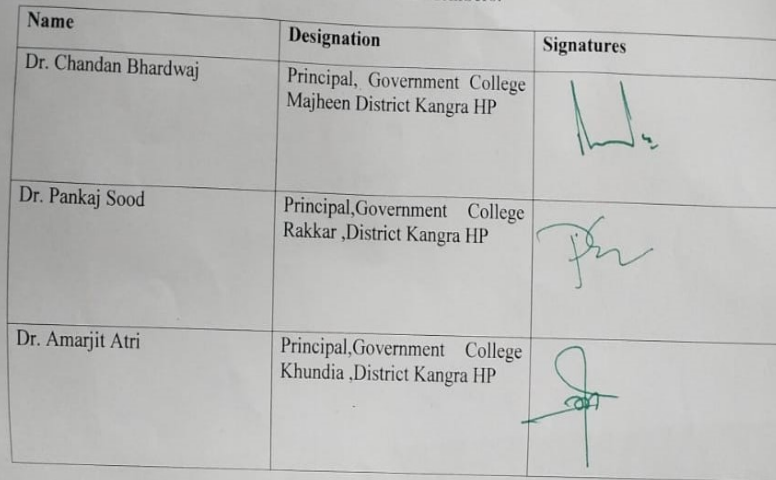 Name
Designation
Signatures
Dr. Chandan Bhardwaj
Principal, Government College
Majheen District Kangra HP
Dr. Pankaj Sood
Principal,Government College
Rakkar ,District Kangra HP
Dr. Amarjit Atri
Principal,Government College
Khundia ,District Kangra HP